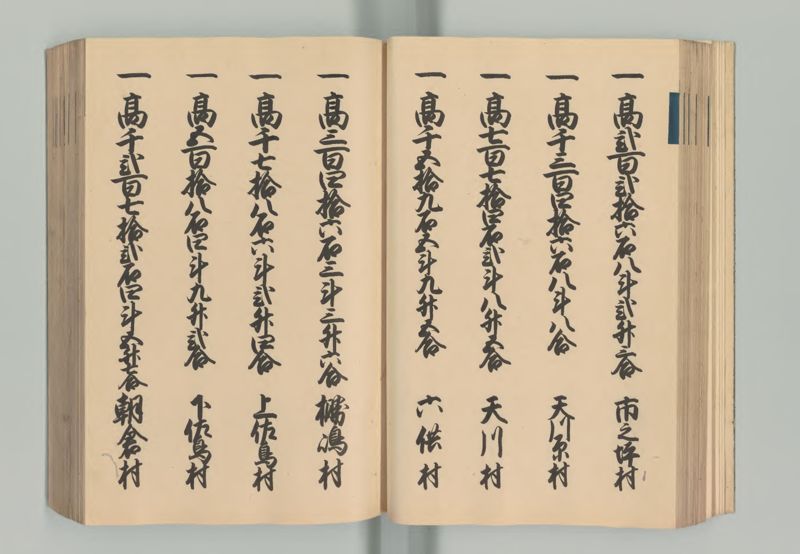 一高弐百弐拾六石八斗弐升三合 市之坪村
一高千三百四拾六石八斗八合 天川原村
一高七百七拾四石弐斗八升五合 天川村
一高千五拾九石五斗九升五合 六供村
一高三百四拾六石三斗三升六合 橳嶋村
一高千七拾八石六斗弐升四合 上佐鳥村
一高五百拾八石四斗九升弐合 下佐鳥村
一高千弐百七拾弐石四斗五升七合 朝倉村